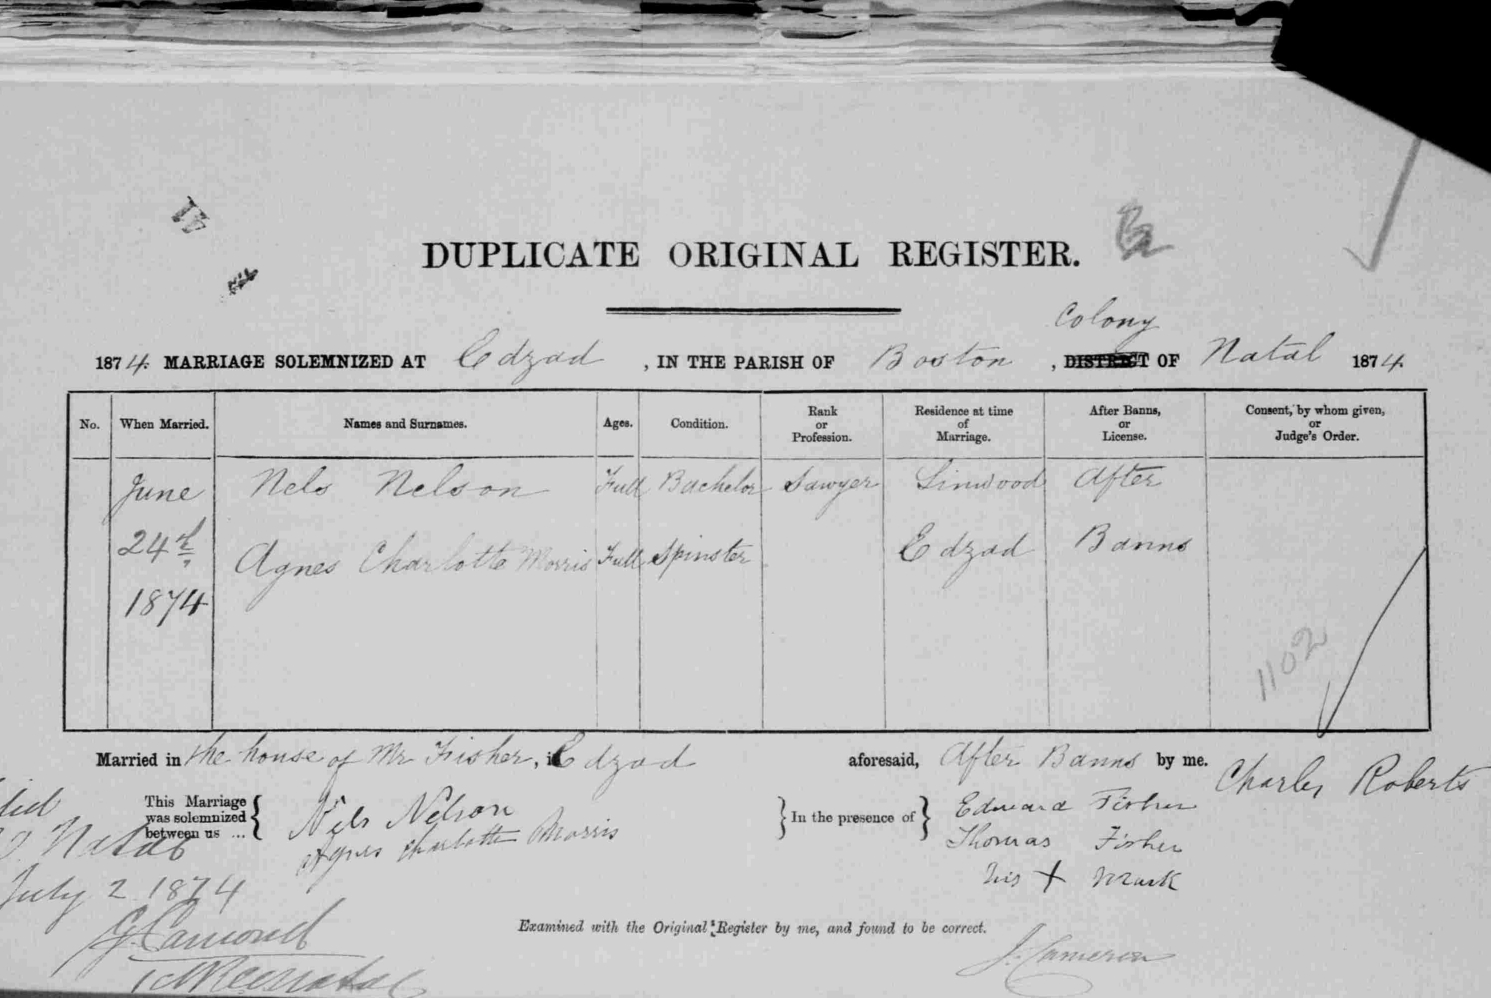 DUPLICATE ORIGINAL REGISTER.
Colony
1874. MARRIAGE SOLEMNIZED AT Edzad, IN THE PARISH OF Boston, DISTRICT OF Natal 1874.
No. When Married. Names and Surnames. Ages. Condition. Rank or Profession. Residence at time of Marriage. After Banns, or License. Consent, by whom given, or Judge's Order.
June Nels Nelson Full Bachelor Sawyer Linwood After
24th Agnes Charlotte Morris Full Spinster Edzad Banns
1874
1102
Married in the house of Mr Fisher, in Edzad aforesaid, After Banns by me. Charles Roberts
This Marriage was solemnized between us ... { Nels Nelson } In the presence of } Edward Fisher
Agnes Charlotte Morris Thomas Fisher
his + Mark
Natal
July 2 1874
Examined with the Original Register by me, and found to be correct.
J. Cameron